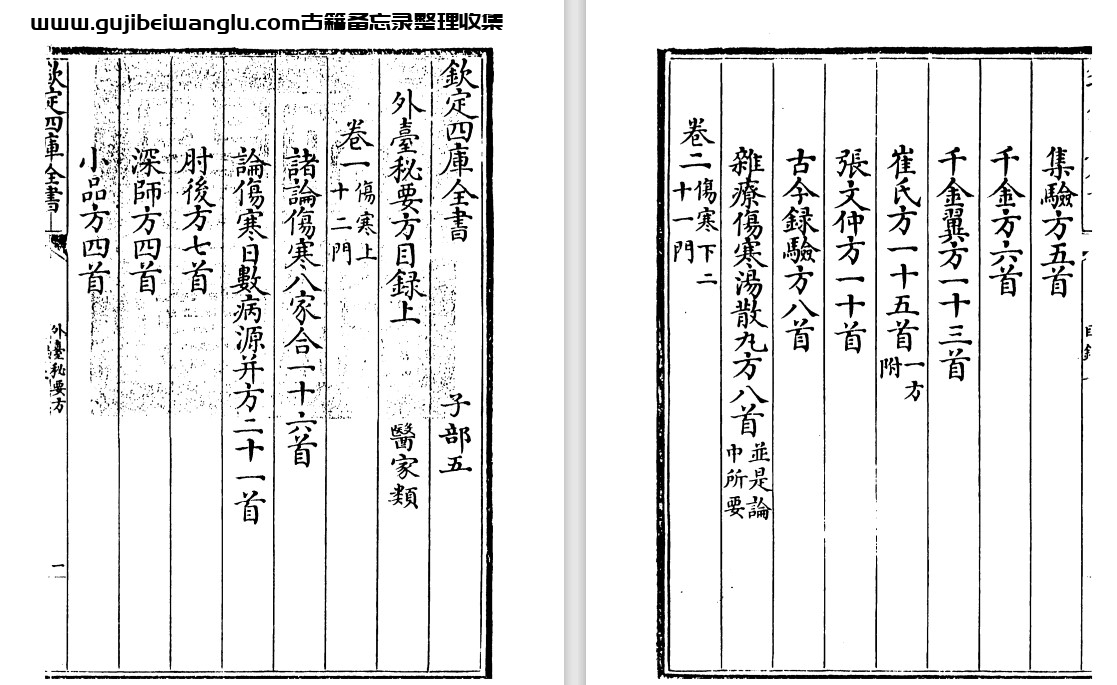 www.gujibeiwanglu.com古籍备忘录整理收集
欽定四庫全書 子部五
外臺秘要方目録上 醫家類
卷一 傷寒上 十二門
諸論傷寒八家合一十六首
論傷寒日數病源并方二十一首
肘後方七首
深師方四首
小品方四首
欽定四庫全書
外臺秘要方
一
集驗方五首
千金方六首
千金翼方一十三首
崔氏方一十五首 一方附
張文仲方一十首
古今録驗方八首
雜療傷寒湯散丸方八首 並是論中所要
卷二 傷寒下二十一門